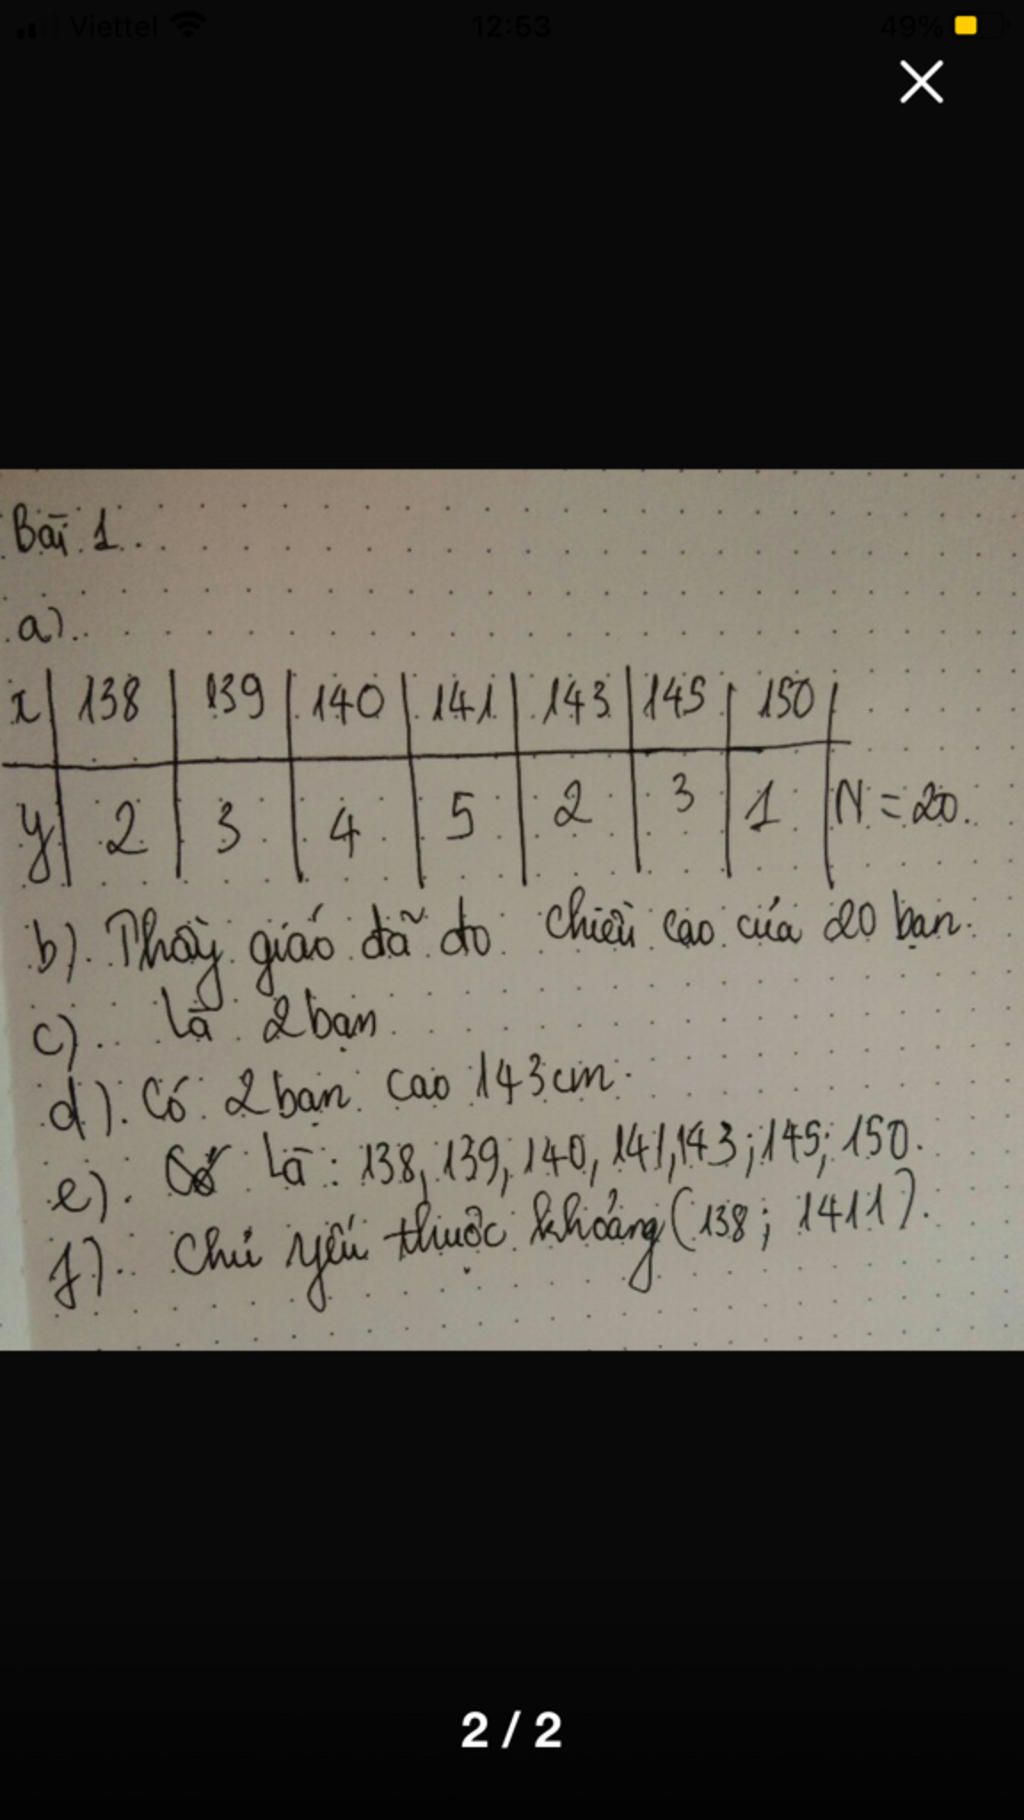 Viettel 12:53 49%
Bài 1
a)
x 138 139 140 141 143 145 150
y 2 3 4 5 2 3 1 N = 20.
b). Thầy giáo đã đo chiều cao của 20 bạn.
c). Là 2 bạn
d). Có 2 bạn cao 143 cm.
e). Là: 138, 139, 140, 141, 143; 145; 150.
f). Chủ yếu thuộc khoảng (138; 1411).
2 / 2